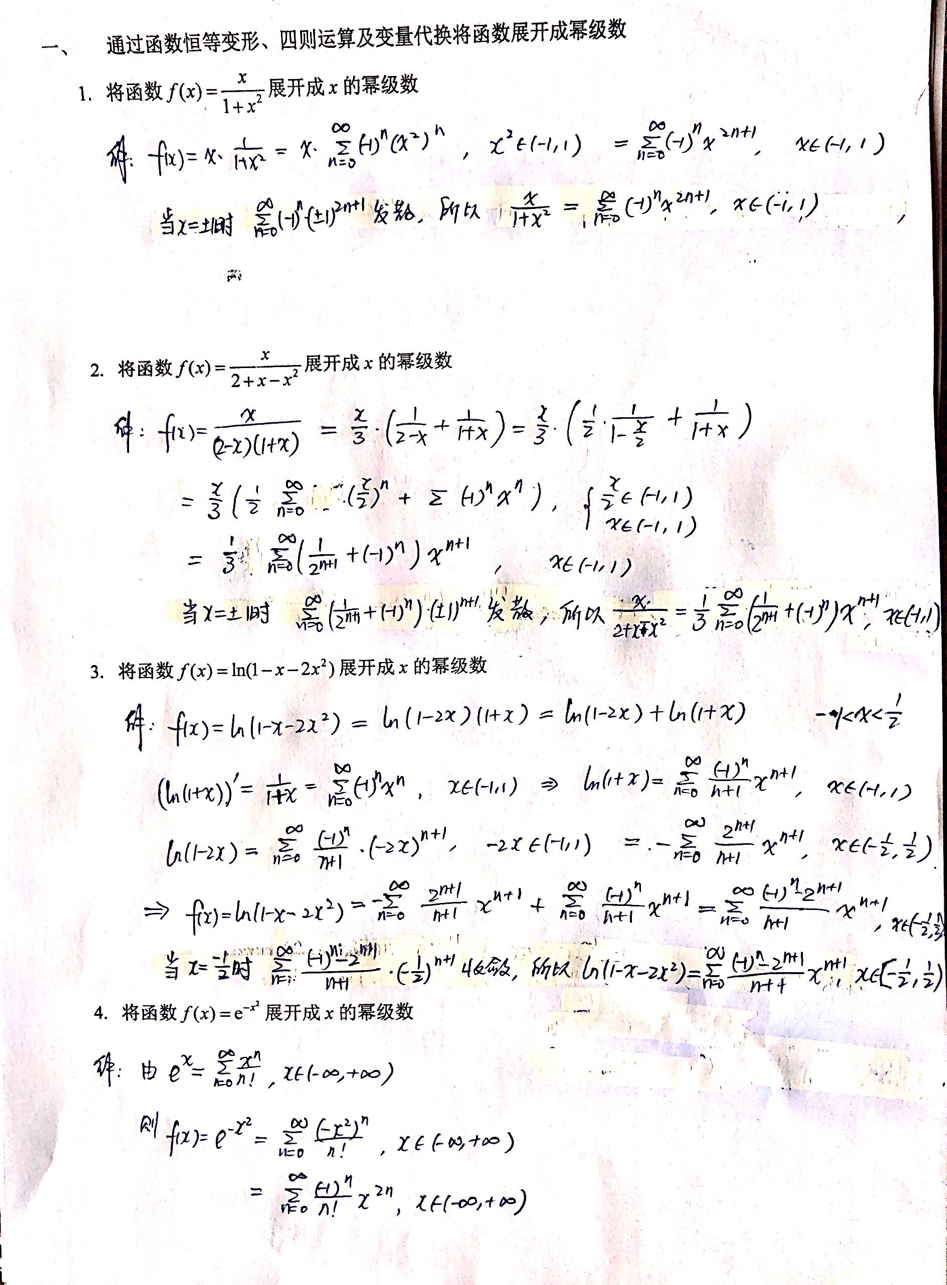 一、 通过函数恒等变形、四则运算及变量代换将函数展开成幂级数
1. 将函数 f(x)=x/(1+x²) 展开成 x 的幂级数
解: f(x)=x·1/(1+x²) = x·∑_{n=0}^{∞}(-1)ⁿ(x²)ⁿ , x²∈(-1,1) = ∑_{n=0}^{∞}(-1)ⁿx^{2n+1}, x∈(-1,1)
当x=±1时 ∑_{n=0}^{∞}(-1)ⁿ(±1)^{2n+1} 发散, 所以 x/(1+x²) = ∑_{n=0}^{∞}(-1)ⁿx^{2n+1}, x∈(-1,1)
2. 将函数 f(x)=x/(2+x-x²) 展开成 x 的幂级数
解: f(x)=x/((2-x)(1+x)) = x/3·(1/(2-x)+1/(1+x)) = x/3·(1/2·1/(1-x/2)+1/(1+x))
= x/3(1/2 ∑_{n=0}^{∞}(x/2)ⁿ + ∑(-1)ⁿxⁿ), {x/2∈(-1,1) x∈(-1,1)
= 1/3 ∑_{n=0}^{∞}(1/2^{n+1}+(-1)ⁿ)x^{n+1}, x∈(-1,1)
当x=±1时 ∑_{n=0}^{∞}(1/2^{n+1}+(-1)ⁿ)·(±1)^{n+1} 发散, 所以 x/(2+x-x²) = 1/3 ∑_{n=0}^{∞}(1/2^{n+1}+(-1)ⁿ)x^{n+1}, x∈(-1,1)
3. 将函数 f(x)=ln(1-x-2x²) 展开成 x 的幂级数
解: f(x)=ln(1-x-2x²) = ln(1-2x)(1+x) = ln(1-2x)+ln(1+x) -1<x<1/2
(ln(1+x))′=1/(1+x)=∑_{n=0}^{∞}(-1)ⁿxⁿ, x∈(-1,1) ⇒ ln(1+x)=∑_{n=0}^{∞}(-1)ⁿ/(n+1) x^{n+1}, x∈(-1,1)
ln(1-2x)=∑_{n=0}^{∞}(-1)ⁿ/(n+1)·(-2x)^{n+1}, -2x∈(-1,1) = -∑_{n=0}^{∞}2^{n+1}/(n+1) x^{n+1}, x∈(-1/2,1/2)
⇒ f(x)=ln(1-x-2x²)=-∑_{n=0}^{∞}2^{n+1}/(n+1) x^{n+1}+∑_{n=0}^{∞}(-1)ⁿ/(n+1) x^{n+1}=∑_{n=0}^{∞}((-1)ⁿ-2^{n+1})/(n+1) x^{n+1}, x∈(-1/2,1/2)
当x=-1/2时 ∑^{∞}((-1)ⁿ-2^{n+1})/(n+1)·(-1/2)^{n+1} 收敛, 所以 ln(1-x-2x²)=∑_{n=0}^{∞}((-1)ⁿ-2^{n+1})/(n+1) x^{n+1}, x∈[-1/2,1/2)
4. 将函数 f(x)=e^{-x²} 展开成 x 的幂级数
解: 由 e^x=∑_{n=0}^{∞}xⁿ/n!, x∈(-∞,+∞)
则 f(x)=e^{-x²}=∑_{n=0}^{∞}(-x²)ⁿ/n!, x∈(-∞,+∞)
= ∑_{n=0}^{∞}(-1)ⁿ/n! x^{2n}, x∈(-∞,+∞)